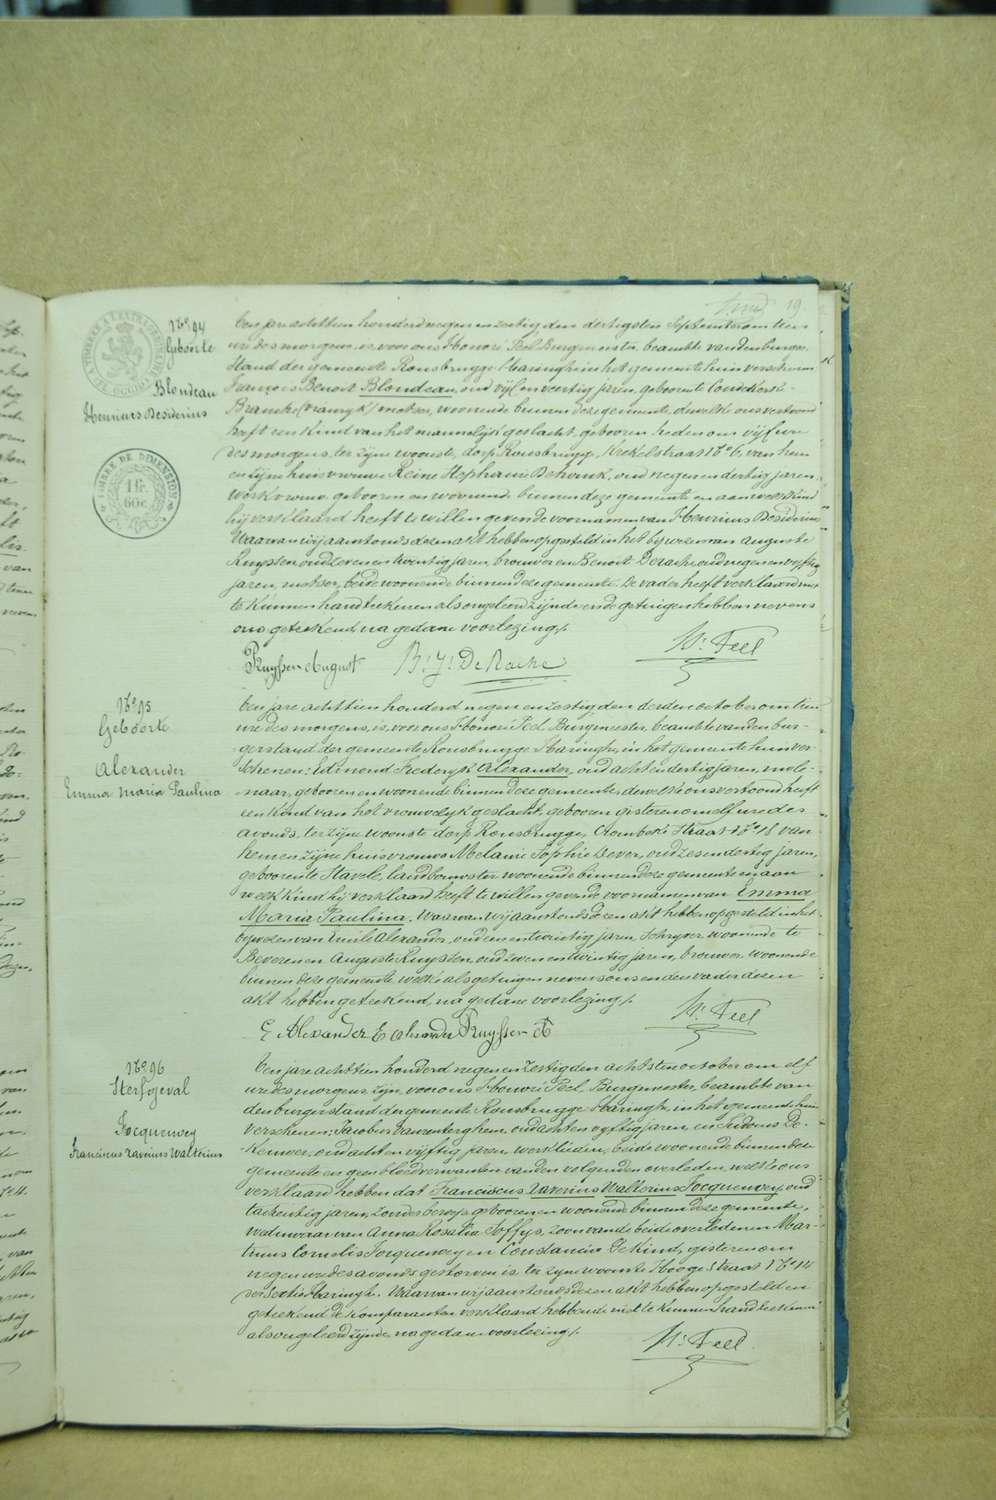 19
N° 94
Geboorte
Blondeau
Henricus Desiderius
TIMBRE DE DIMENSION
1 fr.
60 c.
Een jare achttien honderd negen en zestig den dertigsten September om tien
ure des morgens, is voor ons Honoré Feel Burgmeester, beambte van den burger-
stand der gemeente Rousbrugge-Haringhe in het gemeente huis verschenen
François Benoit Blondeau, oud vijf en veertig jaren, geboren te Coudekerk-
Branche (vrankryk) metser, woonende binnen deze gemeente, dewelke ons vertoond
heeft een kind van het mannelijk geslacht, geboren heden om vijf ure
des morgens, ter zijne woonste, dorp Rousbrugge, Krekelstraat N° 6, van hem
en zijne huisvrouwe Reine Stephanie Dehonck, oud negen en dertig jaren,
Werkvrouw, geboren en woonende binnen deze gemeente en aan welk kind
hij verklaard heeft te willen geven de voornamen van Henricus Desiderius
Waarvan wij aanstonds dezen akt hebben opgesteld in het bijwezen van Auguste
Ruyssen oud zeven en twintig jaren, brouwer en Benoit Derache, oud negen en vyftig
jaren, metser, beide woonende binnen deze gemeente. De vader heeft verklaard niet
te kunnen handteekenen als ongeleerd zijnde en de getuigen hebben nevens
ons geteekend, na gedane voorlezing /.
Ruyssen August B. J. De Rache H. Feel
N° 95
Geboorte
Alexander
Emma Maria Paulina
Een jare achttien honderd negen en zestig den derden october om tien
ure des morgens, is voor ons Honoré Feel Burgmeester, beambte van den bur-
gerstand der gemeente Rousbrugge-Haringhe, in het gemeente huis ver-
schenen: Edmond Frederyk Alexander, oud acht en dertig jaren, mole-
naar, geboren en woonende binnen deze gemeente, dewelke ons vertoond heeft
een kind van het vrouwelyk geslacht, geboren gisteren om elf ure des
avonds, ter zijne woonste dorp Rousbrugge, Straat N° 18 van
hem en zijne huisvrouwe Melanie Sophie Dever, oud zes en dertig jaren,
geboren te Stavele, landbouwster woonende binnen deze gemeente en aan
welk kind hij verklaard heeft te willen geven de voornamen van Emma
Maria Paulina. Waarvan wij aanstonds dezen akt hebben opgesteld in het
bywezen van Emile Alexander, oud een en twintig jaren, Schryver woonende te
Beveren en Auguste Ruyssen, oud zeven en twintig jaren, brouwer woonende
binnen deze gemeente welke als getuigen nevens ons en den vader dezen
akt hebben geteekend, na gedane voorlezing /.
E. Alexander E alexander Ruyssen A H. Feel
N° 96
Sterfgeval
Jocquewey
Franciscus Xaverius Walterius
Een jare achttien honderd negen en zestig den achtsten october om elf
ure des morgens zyn voor ons Honoré Feel Burgmeester, beambte van
den burgerstand der gemeente Rousbrugge-Haringhe, in het gemeente huis
verschenen: Jacobus Vaneenterghem, oud achten vyftig jaren en Fidonus De-
keuwer, oud acht en vijftig jaren, werklieden, beide woonende binnen deze
gemeente en geen bloedverwanten van den volgenden overleden, welke ons
verklaard hebben dat Franciscus Xaverius Walterius Jocquewey, oud
tachentig jaren, zonder beroep, geboren en woonende binnen deze gemeente,
weduwaar van Anna Rosalia Joffys, zoon van de beide overledenen Mar-
tinus Cornelis Jocquewey en Constancia DeKind, gisteren om
negen ure des avonds gestorven is, ter zijne woonste Hooge Straat N° 14
der Sectie Haringhe. Waarvan wij aanstonds dezen akt hebben opgesteld en
geteekend de komparanten verklaard hebbende niet te kunnen handteekenen
als ongeleerd zijnde, na gedane voorlezing /.
H. Feel